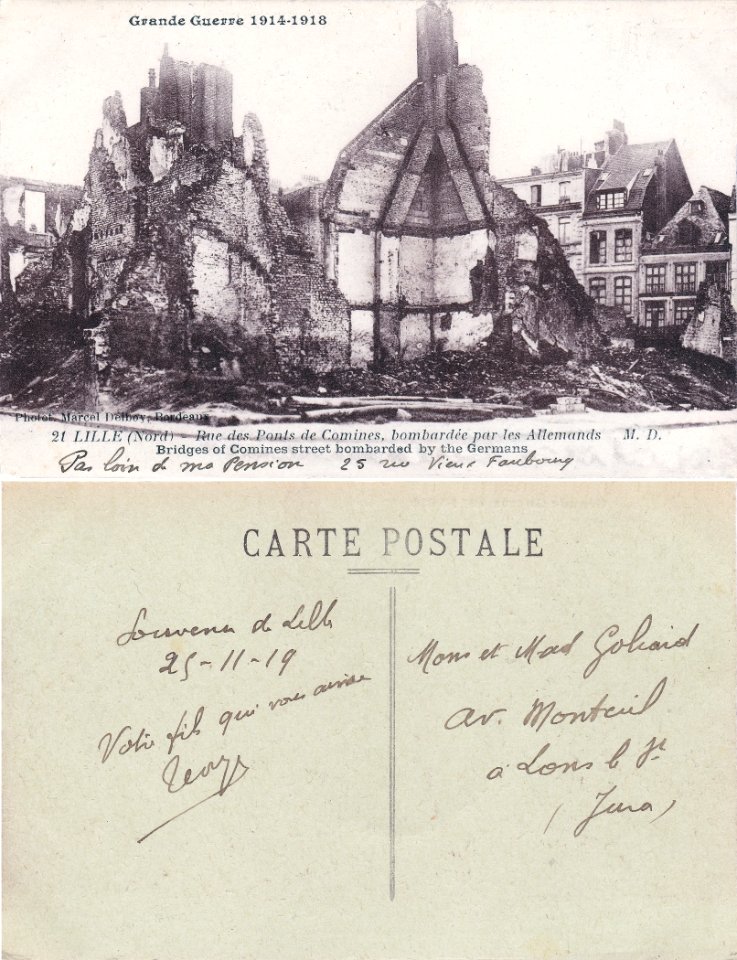 Grande Guerre 1914-1918
Photot. Marcel Delboy, Bordeaux
21 LILLE (Nord) - Rue des Ponts de Comines, bombardée par les Allemands M. D.
Bridges of Comines street bombarded by the Germans
Pas loin de ma Pension 25 rue Vieux Faubourg
CARTE POSTALE
Souvenir de Lille
25-11-19
Votre fils qui vous aime
Mons et Mad Goliard
Av. Monteuil
à Lons le Sr
(Jura)